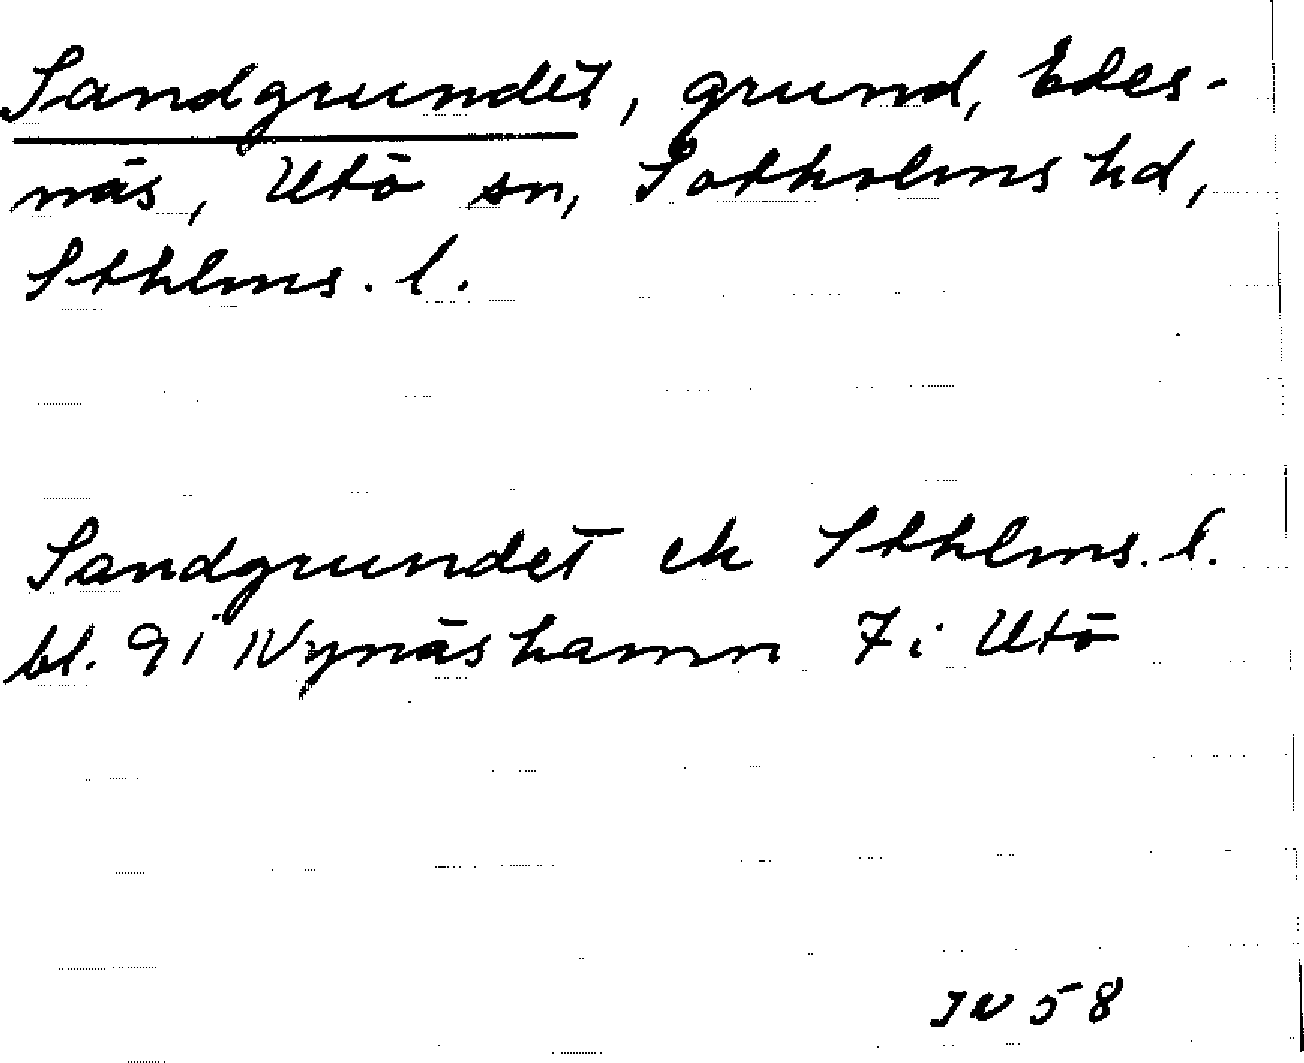 Sandgrundet, grund, Edes-
näs, Utö sn, Sotholms hd,
Sthlms. l.
Sandgrundet ek Sthlms. l.
bl. 91 Nynäshamn 7i Utö
58